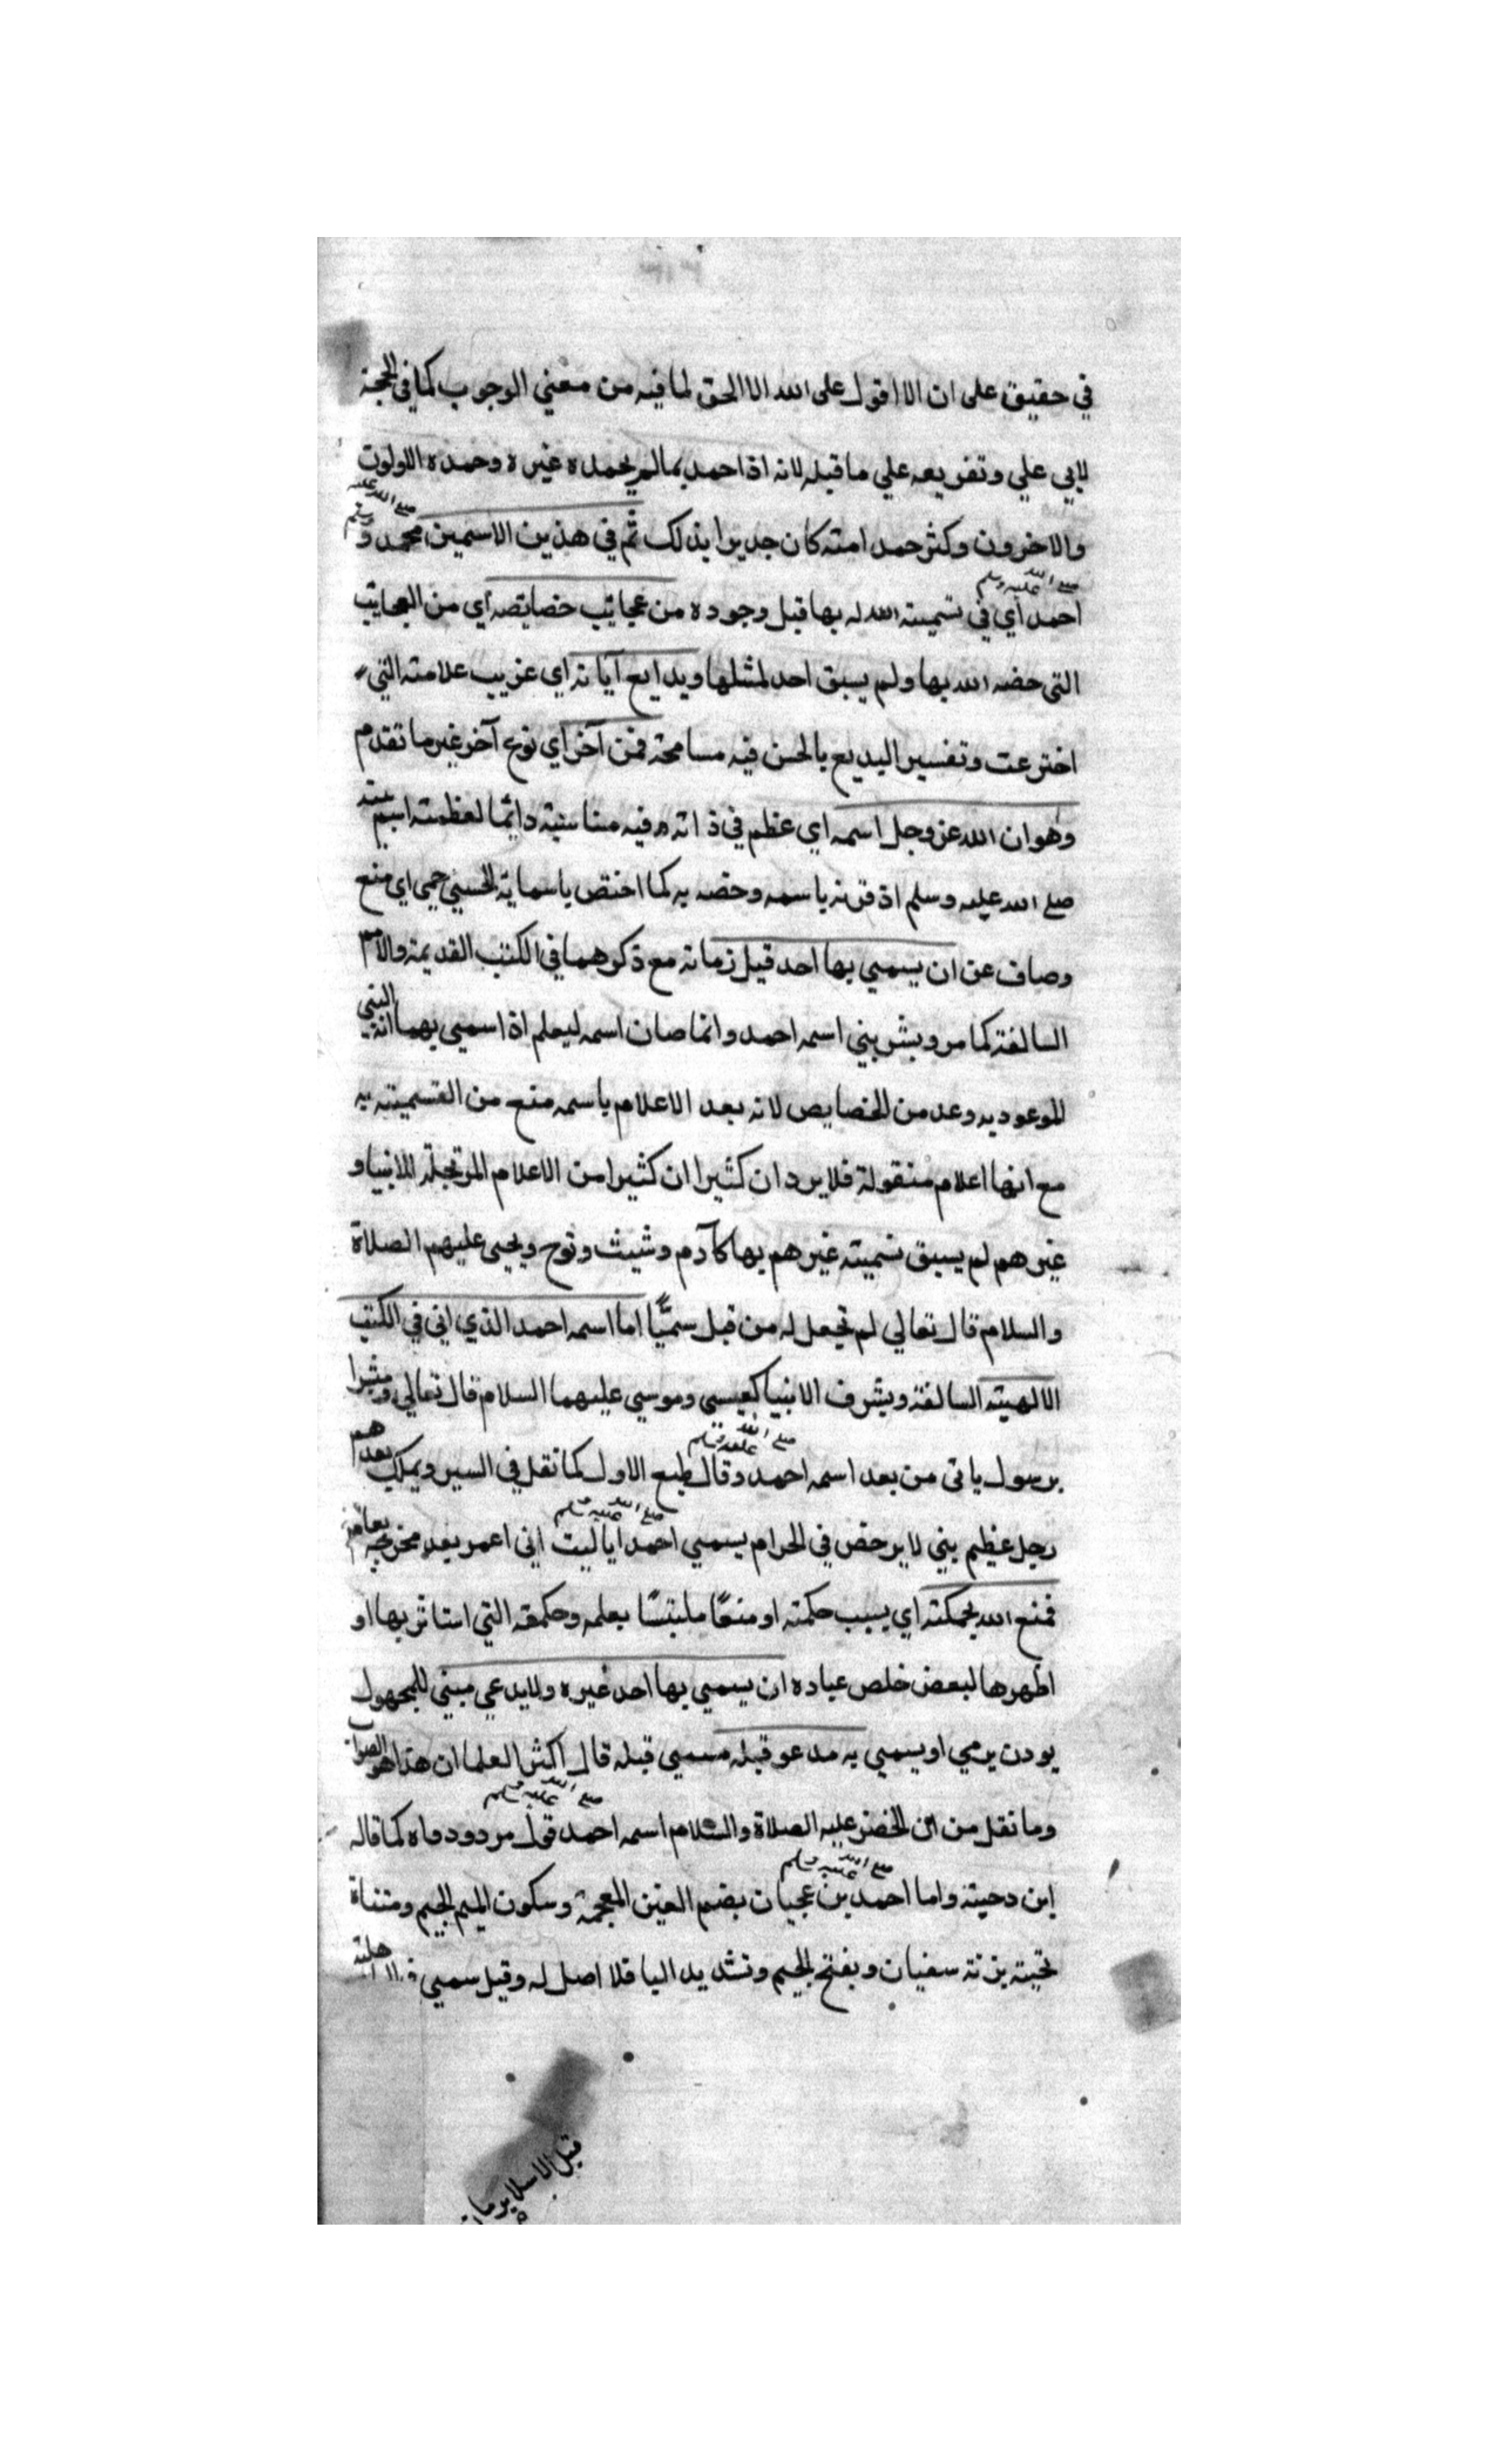 في حقيق على ان لا اقول على الله الا الحق لما فيه من معني الوجوب كما في الحجة
لابي علي وتفريعه علي ما قبله لانه اذا حمد بما لم يحمده غيره وحمده الاولون
والاخرون وكثر حمد امته كان جديرا بذلك ثم في هذين الاسمين محمد صلى الله عليه وسلم و
احمد صلى الله عليه وسلم أي في تسميته الله له بها قبل وجوده من عجائب خصايصه أي من العجائب
التي خصه الله بها ولم يسبق احد لمثلها وبدايع آياته اي غريب علامته التي
اخترعت وتفسير البديع بالحسن فيه مسامحة فمن آخر أي نوع آخر غير ما تقدم
وهو ان الله عز وجل اسمه اي عظم في ذاته وفيه مناسبة دائما لعظمته اسم نبيه
صلى الله عليه وسلم اذ قرنه باسمه وخصه به كما اختص باسمايه الحسني حمي اي منع
وصان عن ان يسمي بها احد قبل زمانه مع ذكرهما في الكتب القديمة والامم
السالفة كما مر وبشر بنبي اسمه احمد وانما صان اسمه ليعلم اذا سمي بهما انه النبي
الموعود به وعد من الخصايص لانه بعد الاعلام باسمه منع من التسمية به
مع انها اعلام منقولة فلا يرد ان كثيرا ان كثيرا من الاعلام المرتجلة للانبيا و
غيرهم لم يسبق تسمية غيرهم بها كآدم وشيث ونوح ويحيى عليهم الصلاة
والسلام قال تعالي لم نجعل له من قبل سميًّا اما اسمه احمد الذي اتى في الكتب
الالهية السالفة وبشرف الانبيا كعيسى وموسي عليهما السلام قال تعالي ومبشرا
برسول ياتى من بعد اسمه احمد صلى الله عليه وسلم وقال طبع الاول كما نقل في السير ويملك بعدهم
رجل عظيم نبي لا يرخص في الحرام يسمي احمد صلى الله عليه وسلم ايا ليت اني اعمر بعد مخرجه بعام
فمنع الله بحكمته اي بسبب حكمته او منعًا ملتبسًا بعلمه وحكمته التي استاثر بها او
اظهرها لبعض خلص عباده ان يسمي بها احد غيره ولا يدعي مبني للمجهول
بوزن يرمي او يسمي به مدعو قبله مسمي قبله قال اكثر العلما ان هذا هو الصواب
وما نقل من ان الخضر عليه الصلاة والسلام اسمه احمد صلى الله عليه وسلم قول مردود واه كما قاله
ابن دحية واما احمد صلى الله عليه وسلم بن عجيان بضم العين المعجمة وسكون الميم الجيم ومثناة
تحتية بزنة سفيان وبفتح الجيم وتشديد اليا فلا اصل له وقيل سمي
قبل الاسلام